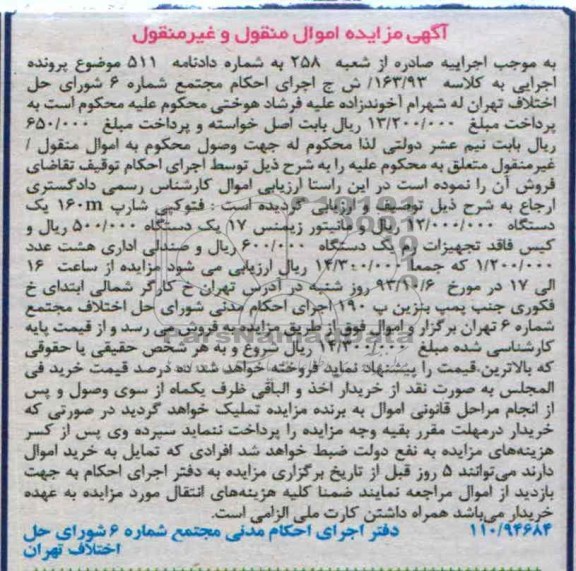 آگهی مزایده اموال منقول و غیرمنقول
به موجب اجراییه صادره از شعبه ۲۵۸ به شماره دادنامه ۵۱۱ موضوع پرونده
اجرایی به کلاسه ۱۶۳/۹۳/ ش ج اجرای احکام مجتمع شماره ۶ شورای حل
اختلاف تهران له شهرام آخوندزاده علیه فرشاد هوختی محکوم علیه محکوم است به
پرداخت مبلغ ۱۳/۲۰۰/۰۰۰ ریال بابت اصل خواسته و پرداخت مبلغ ۶۵۰/۰۰۰
ریال بابت نیم عشر دولتی لذا محکوم له جهت وصول محکوم به اموال منقول /
غیرمنقول متعلق به محکوم علیه را به شرح ذیل توسط اجرای احکام توقیف تقاضای
فروش آن را نموده است در این راستا ارزیابی اموال کارشناس رسمی دادگستری
ارجاع به شرح ذیل توصیف و ارزیابی گردیده است : فتوکپی شارپ ۱۶۰m یک
دستگاه ۱۲/۰۰۰/۰۰۰ ریال و مانیتور زیمنس ۱۷ یک دستگاه ۵۰۰/۰۰۰ ریال و
کیس فاقد تجهیزات رم یک دستگاه ۶۰۰/۰۰۰ ریال و صندلی اداری هشت عدد
۱/۲۰۰/۰۰۰ که جمعا ۱۴/۳۰۰/۰۰۰ ریال ارزیابی می شود مزایده از ساعت ۱۶
الی ۱۷ در مورخ ۹۳/۱۰/۶ روز شنبه در آدرس تهران خ کارگر شمالی ابتدای خ
فکوری جنب پمپ بنزین پ ۱۹۰ اجرای احکام مدنی شورای حل اختلاف مجتمع
شماره ۶ تهران برگزار و اموال فوق از طریق مزایده به فروش می رسد و از قیمت پایه
کارشناسی شده مبلغ ۱۴/۳۰۰/۰۰۰ ریال شروع و به هر شخص حقیقی یا حقوقی
که بالاترین قیمت را پیشنهاد نماید فروخته خواهد شد ده درصد قیمت خرید فی
المجلس به صورت نقد از خریدار اخذ و الباقی ظرف یکماه از سوی وصول و پس
از انجام مراحل قانونی اموال به برنده مزایده تملیک خواهد گردید در صورتی که
خریدار درمهلت مقرر بقیه وجه مزایده را پرداخت ننماید سپرده وی پس از کسر
هزینه‌های مزایده به نفع دولت ضبط خواهد شد افرادی که تمایل به خرید اموال
دارند می‌توانند ۵ روز قبل از تاریخ برگزاری مزایده به دفتر اجرای احکام به جهت
بازدید از اموال مراجعه نمایند ضمنا کلیه هزینه‌های انتقال مورد مزایده به عهده
خریدار می‌باشد همراه داشتن کارت ملی الزامی است.
۱۱۰/۹۴۶۸۴ دفتر اجرای احکام مدنی مجتمع شماره ۶ شورای حل
اختلاف تهران